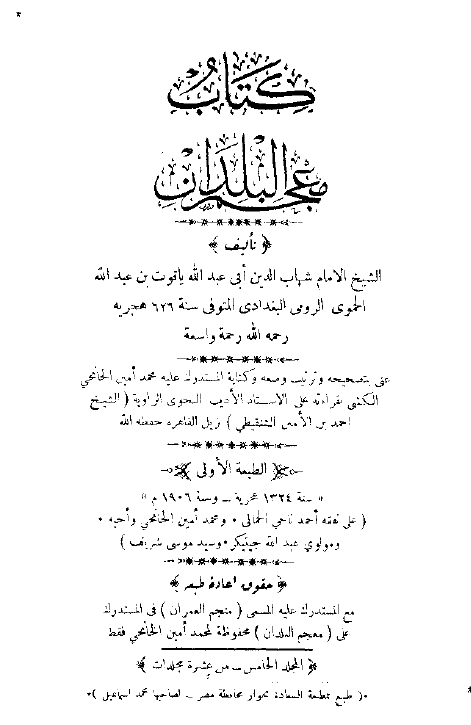 كتاب
معجم البلدان
﴿ تأليف ﴾
الشيخ الامام شهاب الدين أبي عبد الله ياقوت بن عبد الله
الحموي الرومي البغدادي المتوفى سنة ٦٢٦ هجريه
رحمه الله رحمة واسعة
عني بتصحيحه وترتيب وضعه وكتابة المستدرك عليه محمد أمين الخانجي
الكتبي بقراءته على الاستاذ الأديب النحوي الراوية ( الشيخ
احمد بن الأمين الشنقيطي ) نزيل القاهره حفظه الله
﴿ الطبعة الأولى ﴾
« سنة ١٣٢٤ هجرية ــ وسنة ١٩٠٦ م »
( على نفقة أحمد ناجي الجمالي ٠ ومحمد أمين الخانجي وأخيه ٠
ومولوي عبد الله جيتيكر ٠ وسيد موسى شريف )
﴿ حقوق اعادة طبعه ﴾
مع المستدرك عليه المسمى ( منجم العمران ) في المستدرك
على ( معجم البلدان ) محفوظة لمحمد أمين الخانجي فقط
﴿ المجلد الخامس ــ من عشرة مجلدات ﴾
( طبع بمطبعة السعادة بجوار محافظة مصر ــ لصاحبها محمد اسماعيل )